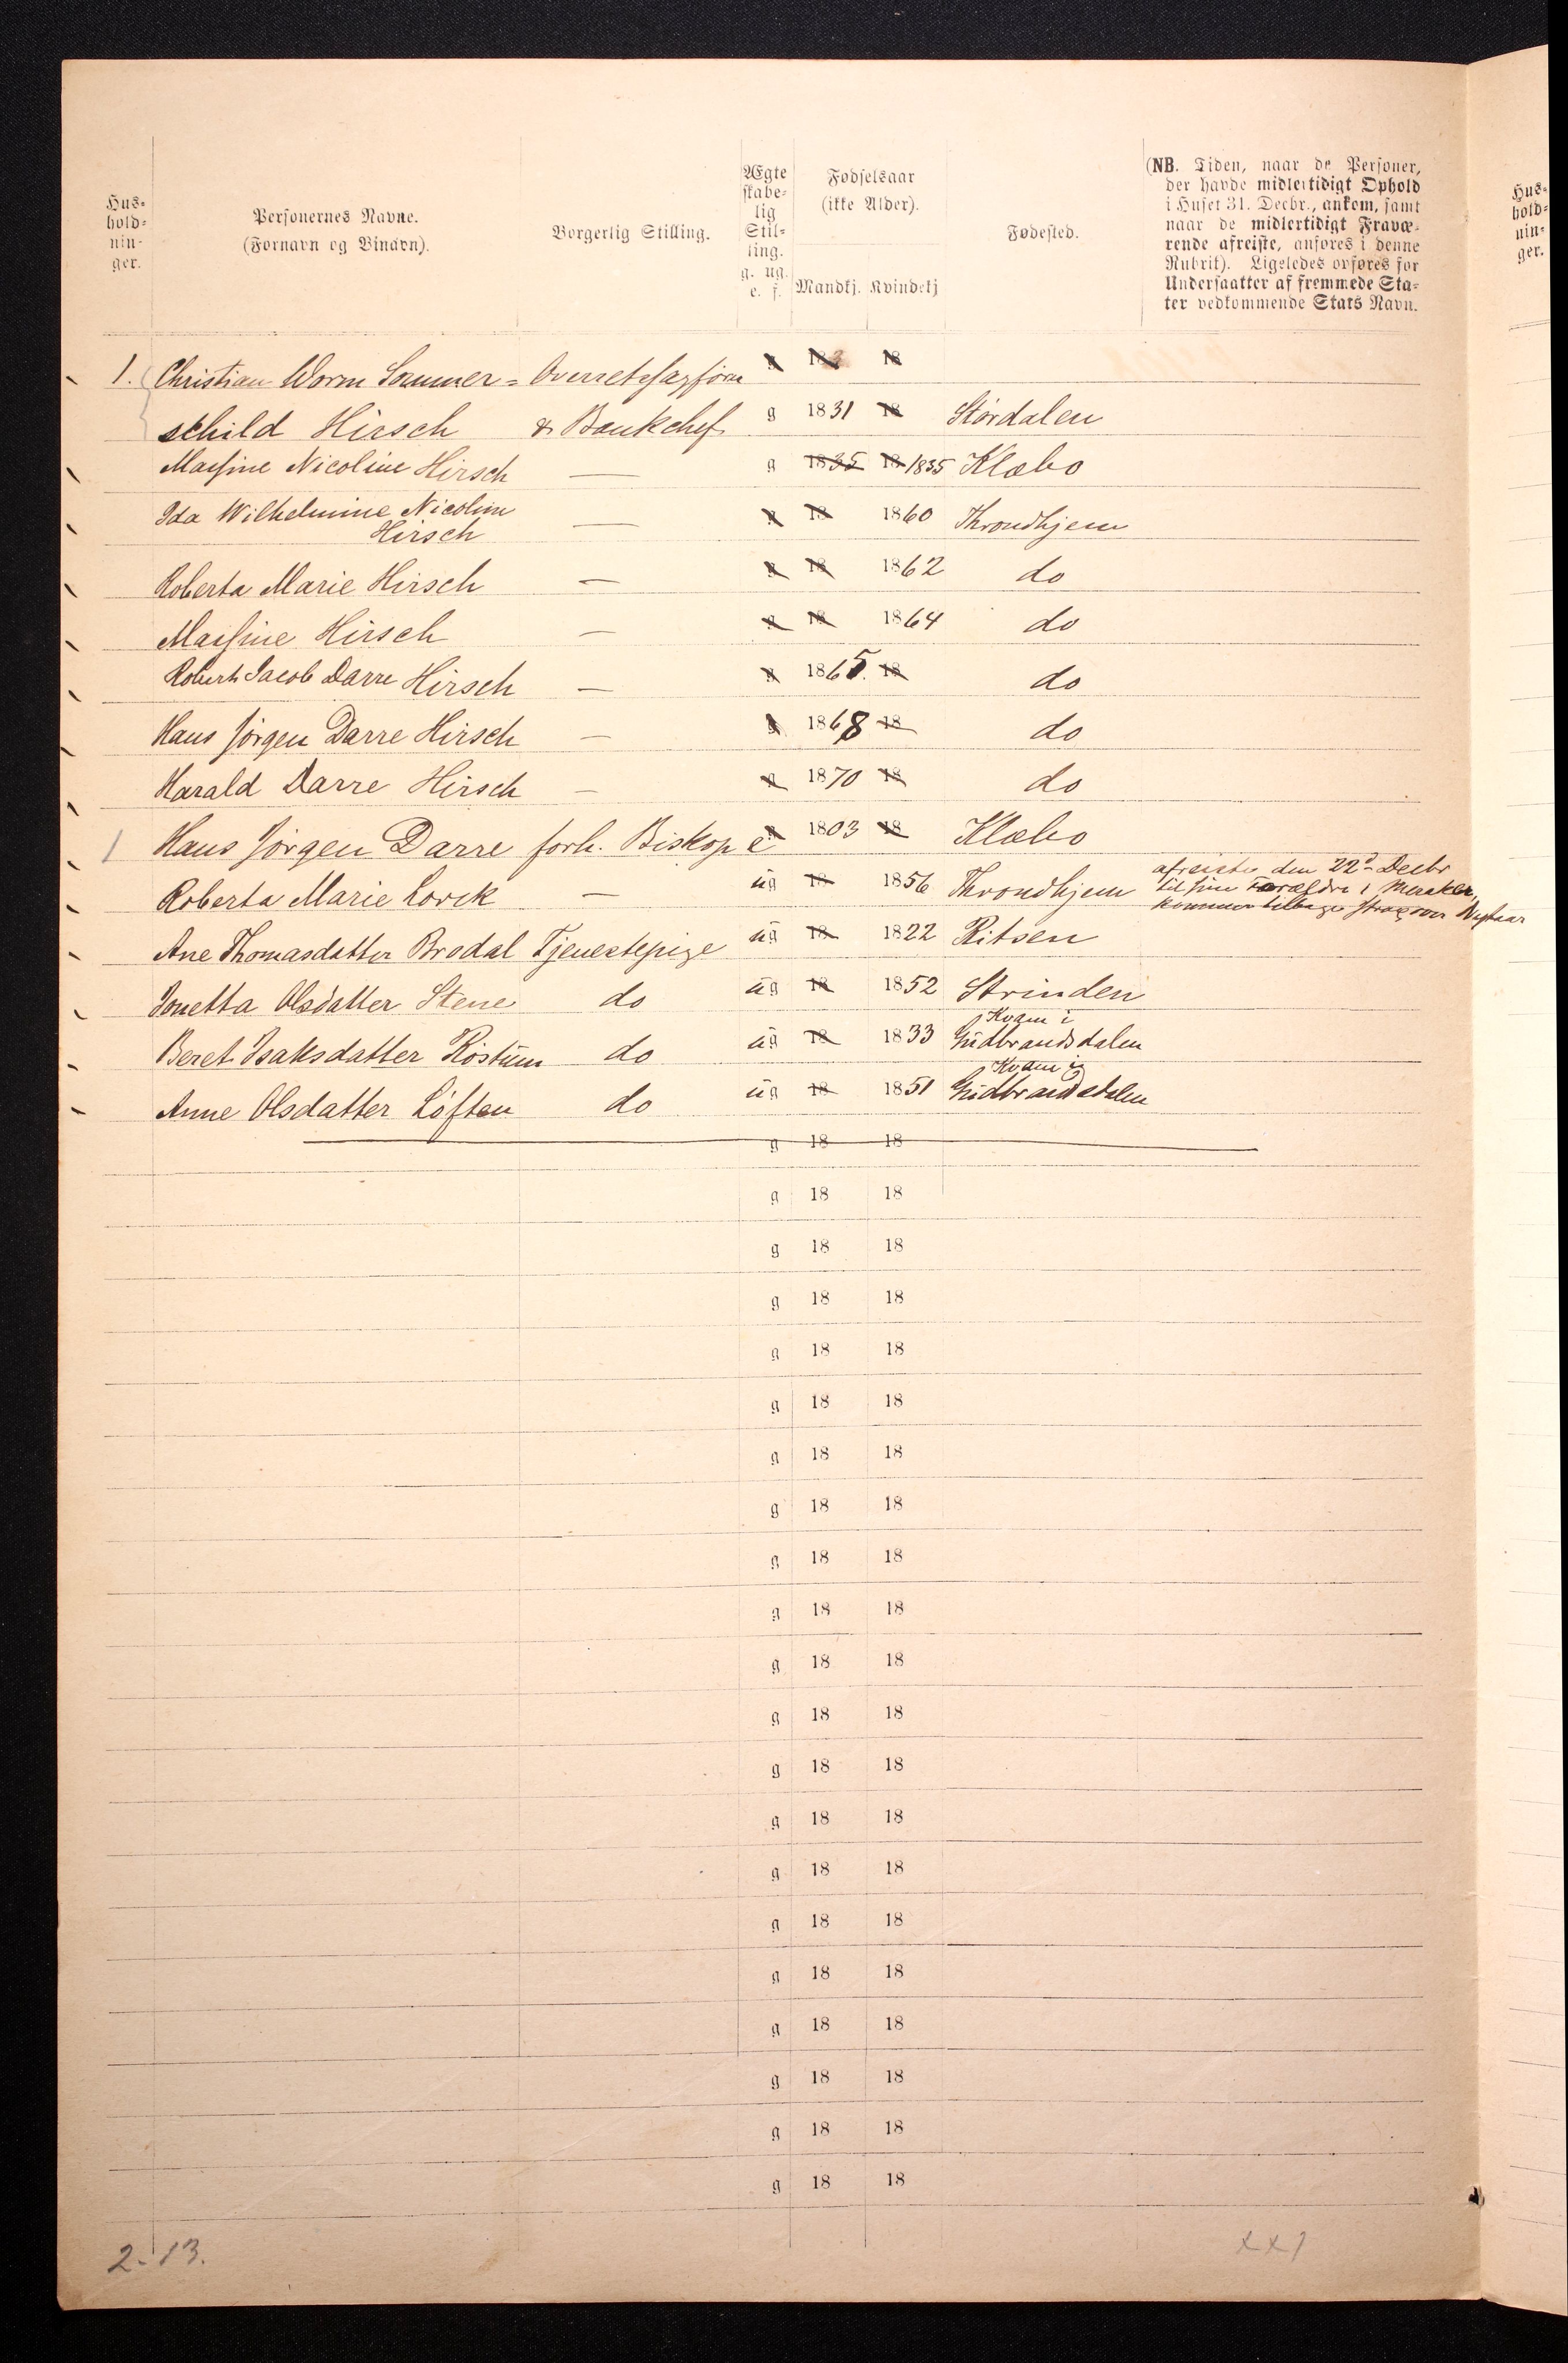 Hus-
hold-
nin-
ger.
Personernes Navne.
(Fornavn og Binavn).
Borgerlig Stilling.
Ægte
skabe-
lig
Stil-
ling.
g. ug.
e. f.
Fødselsaar
(ikke Alder).
Mandkj. Kvindekj
Fødested.
(NB. Tiden, naar de Personer,
der havde midlertidigt Ophold
i Huset 31. Decbr., ankom, samt
naar de midlertidigt Fravæ-
rende afreiste, anføres i denne
Rubrik). Ligeledes opføres for
Undersaatter af fremmede Sta-
ter vedkommende Stats Navn.
Hus-
hold-
nin-
ger.
1. Christian Worm Sommer= Overretssagfører g 18 18
schild Hirsch & Bankchef g 1831 18 Størdalen
Massine Nicoline Hirsch — g 1835 18 1835 Klæbo
Ida Wilhelmine Nicoline
Hirsch — g 18 1860 Throndhjem
Roberta Marie Hirsch — g 18 1862 do
Massine Hirsch — g 18 1864 do
Robert Jacob Darre Hirsch — g 1865. 18 do
Hans Jörgen Darre Hirsch — g 1868 18 do
Harald Darre Hirsch — g 1870 18 do
1 Hans Jörgen Darre forh. Biskop e g 1803 18 Klæbo
Roberta Marie Lorck — ug 18 1856 Throndhjem afreiste den 22d Decbr
til sine Forældre i Meraker,
kommer tilbage strax over Nytaar
Ane Thomasdatter Brodal Tjenestepige ug 18 1822 Ritsen
Jonetta Olsdatter Stene do ug 18 1852 Strinden
Beret Isaksdatter Röstum do ug 18 1833 Kvam i
Gudbrandsdalen
Anne Olsdatter Löften do ug 18 1851 Kvam i
Gudbrandsdalen
g 18 18
g 18 18
g 18 18
g 18 18
g 18 18
g 18 18
g 18 18
g 18 18
g 18 18
g 18 18
g 18 18
g 18 18
g 18 18
g 18 18
g 18 18
g 18 18
g 18 18
g 18 18
g 18 18
g 18 18
g 18 18
2-13.